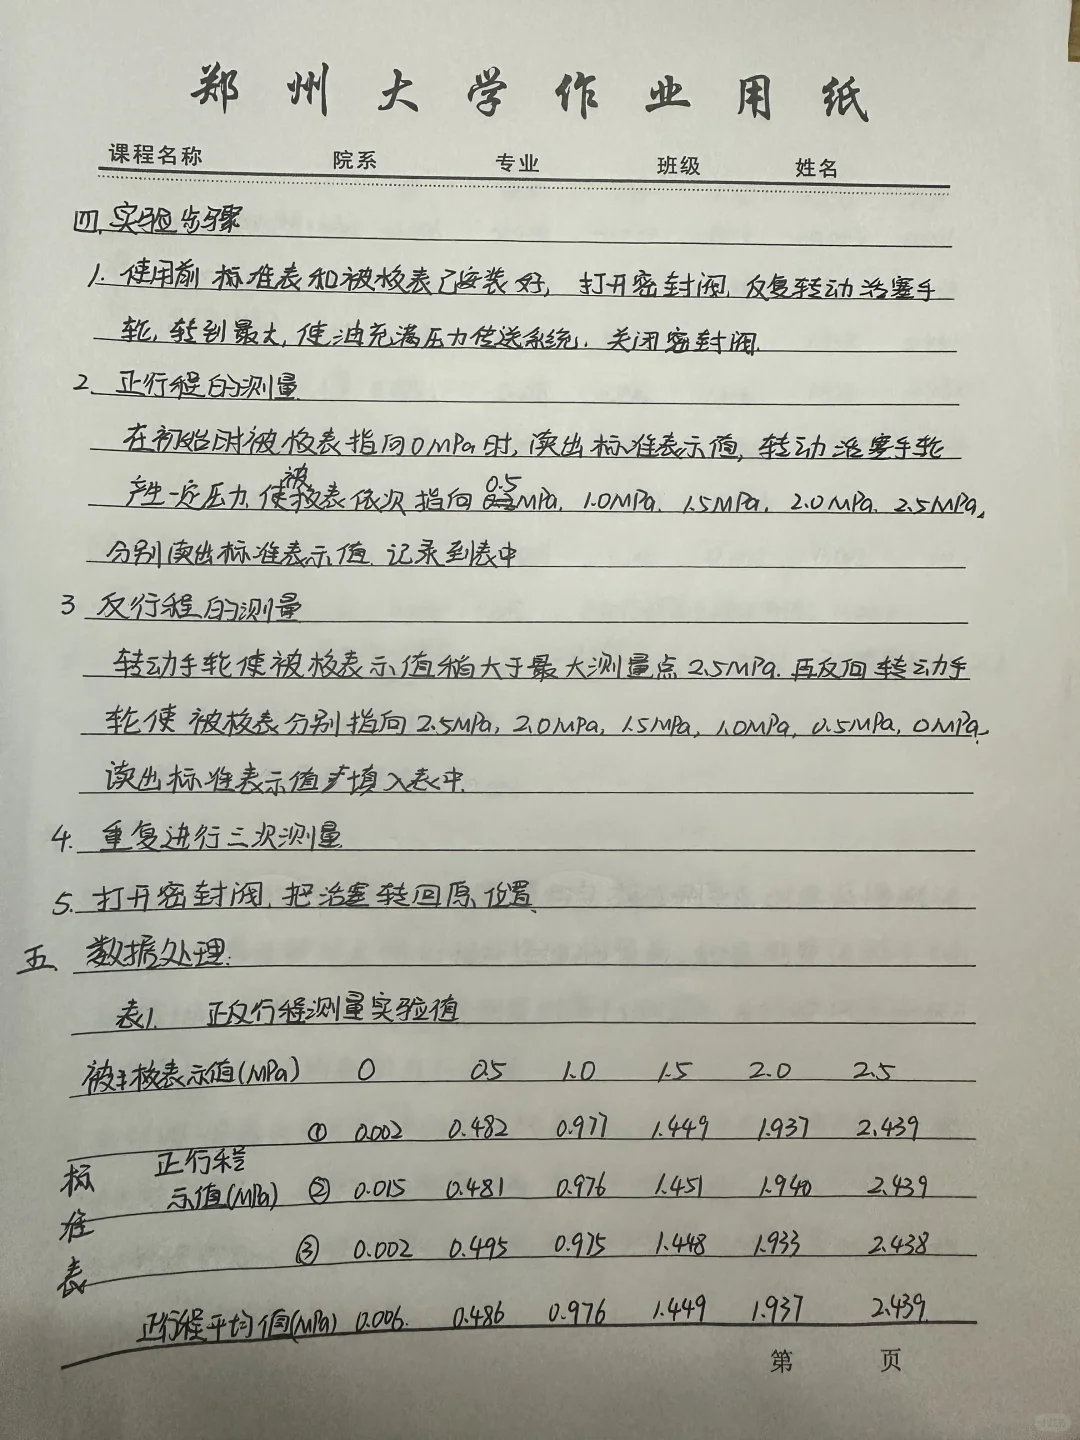 郑州大学作业用纸
课程名称 院系 专业 班级 姓名
四.实验步骤
1. 使用前标准表和被校表已安装好, 打开密封阀,反复转动活塞手
轮,转到最大,使油充满压力传送系统.关闭密封阀.
2. 正行程的测量
在初始时被校表指向0MPa时,读出标准表示值,转动活塞手轮
产生一定压力,使被校表依次指向0.5MPa, 1.0MPa, 1.5MPa, 2.0MPa, 2.5MPa,
分别读出标准表示值.记录到表中
3 反行程的测量
转动手轮使被校表示值稍大于最大测量点2.5MPa.再反向转动手
轮使被校表分别指向2.5MPa, 2.0MPa, 1.5MPa, 1.0MPa, 0.5MPa, 0MPa.
读出标准表示值并填入表中.
4. 重复进行三次测量
5. 打开密封阀,把活塞转回原位置
五. 数据处理:
表1. 正反行程测量实验值
被校表示值(MPa) 0 0.5 1.0 1.5 2.0 2.5
① 0.002 0.482 0.977 1.449 1.937 2.439
标准表 正行程示值(MPa) ② 0.015 0.481 0.976 1.451 1.940 2.439
③ 0.002 0.495 0.975 1.448 1.933 2.438
正行程平均值(MPa) 0.006. 0.486 0.976 1.449 1.937 2.439.
第 页